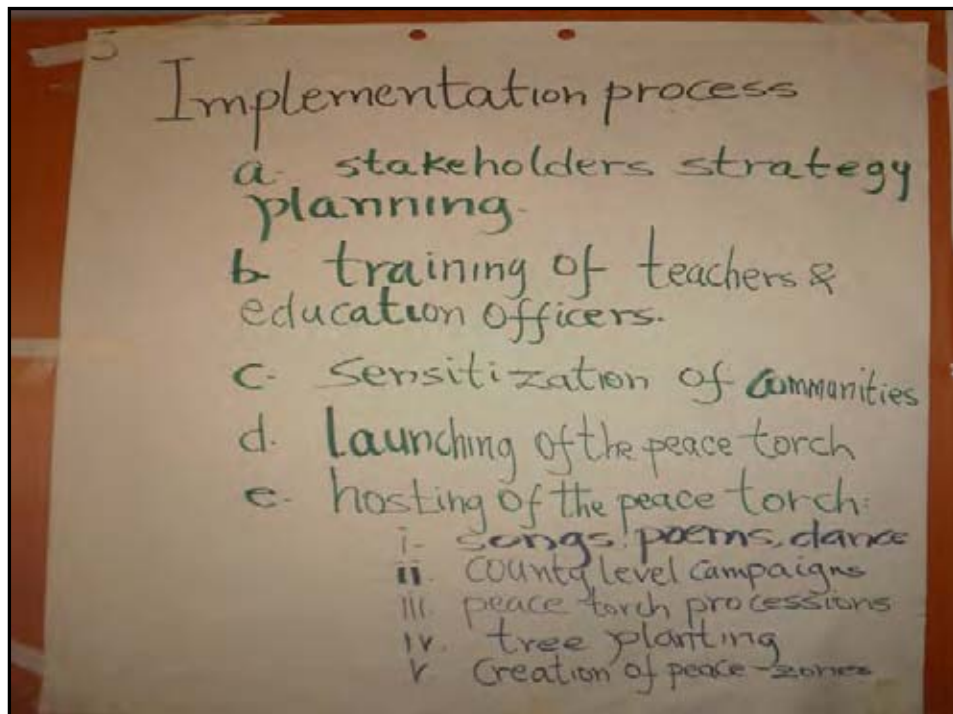 5
Implementation process
a. stakeholders strategy
planning.
b. training of teachers &
education officers.
c. Sensitization of communities
d. Launching of the peace torch
e. hosting of the peace torch:
i. songs, poems, dance
ii. County level campaigns
iii. peace torch processions
iv. tree planting
v. Creation of peace-zones